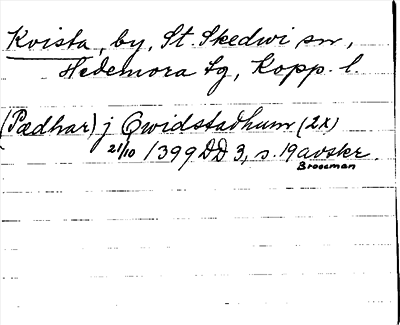 Kvista, by, St. Skedwi sn,
Hedemora tg, Kopp. l.
(Pædhar) j Qwidstadhum (2x)
21/10 1399 DD 3, s. 19 avskr.
Broocman